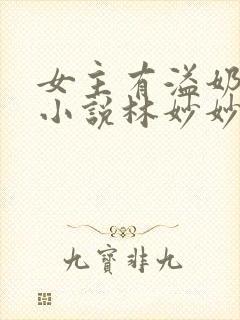 女主有溢奶
小说林妙妙
九寶非九